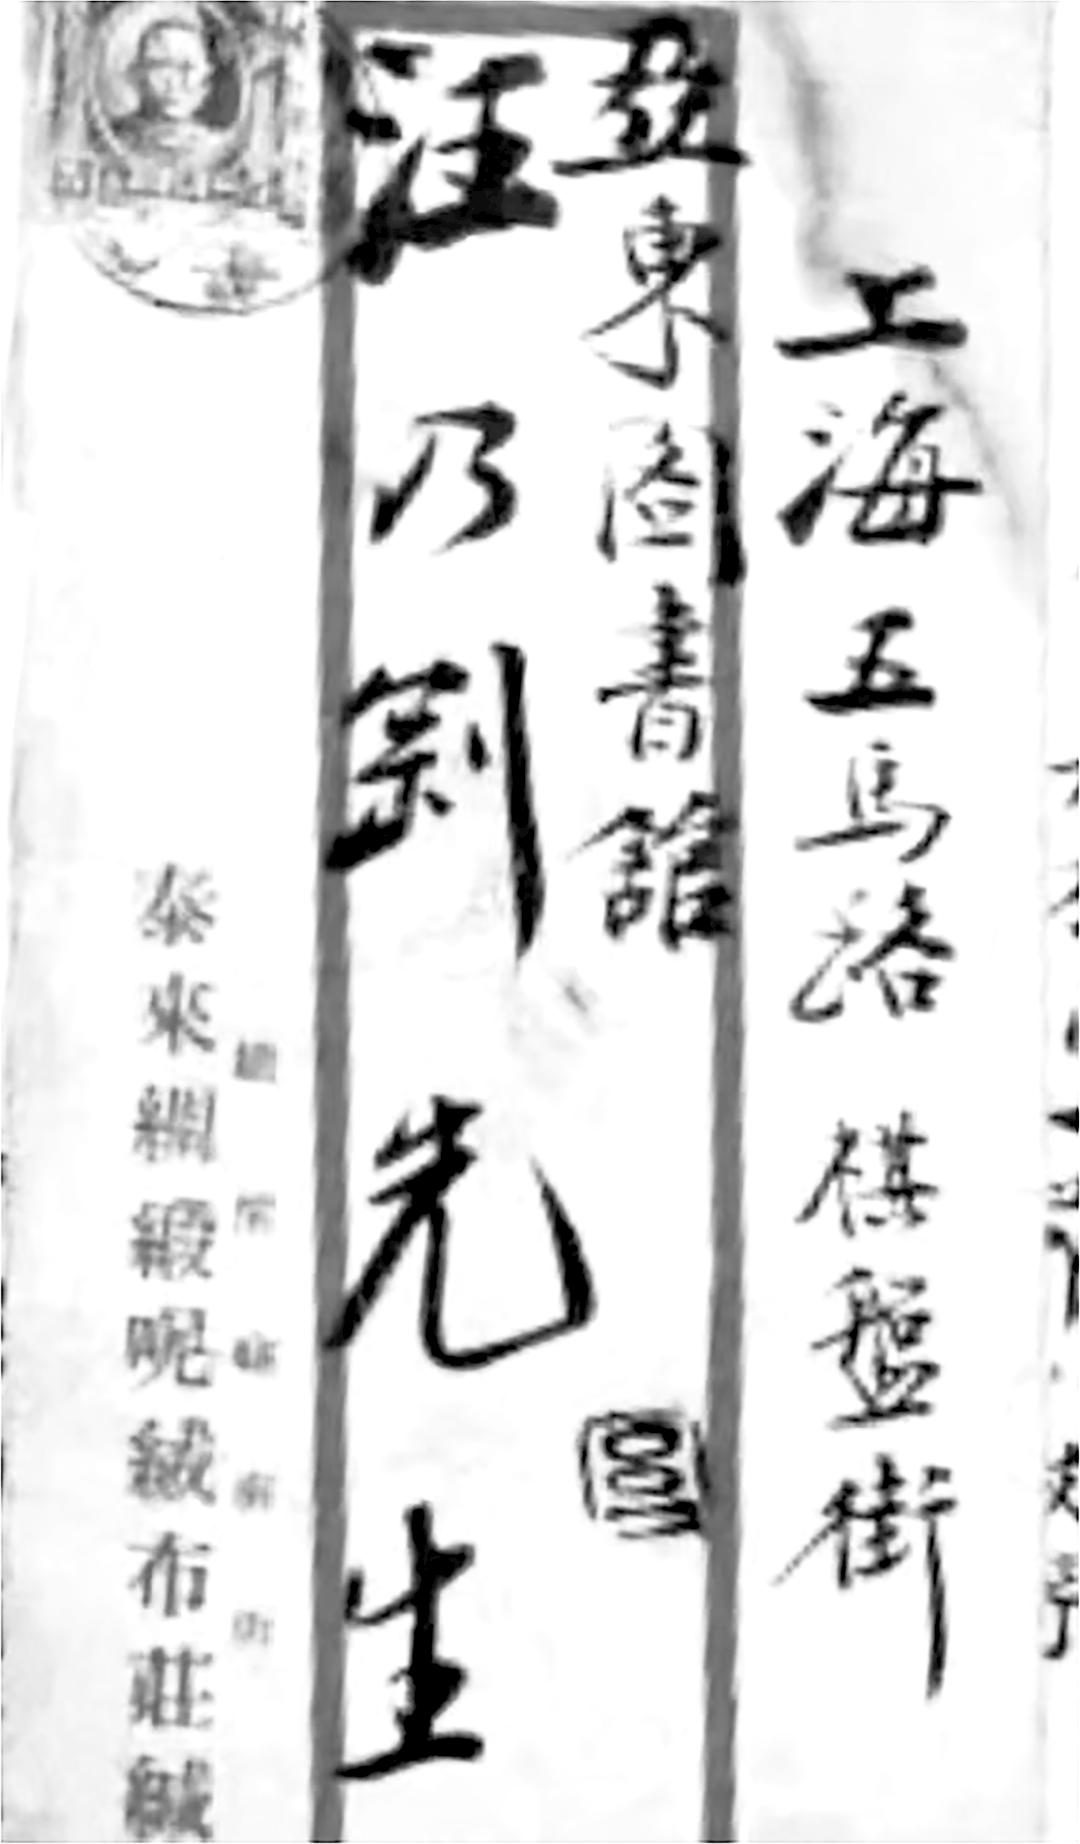 上海五馬路棋盤街
亞東圖書館
汪乃剛先生
泰來綢緞呢絨布莊緘